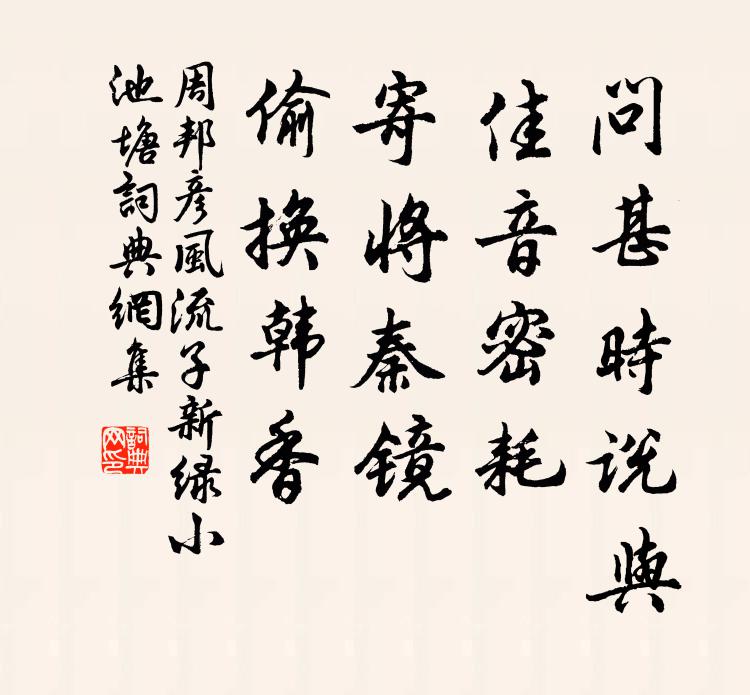 問甚時説與
佳音密耗
寄將秦镜
偷換韩香
周邦彦風流子新绿小
池塘詞典網集
詞典
网印